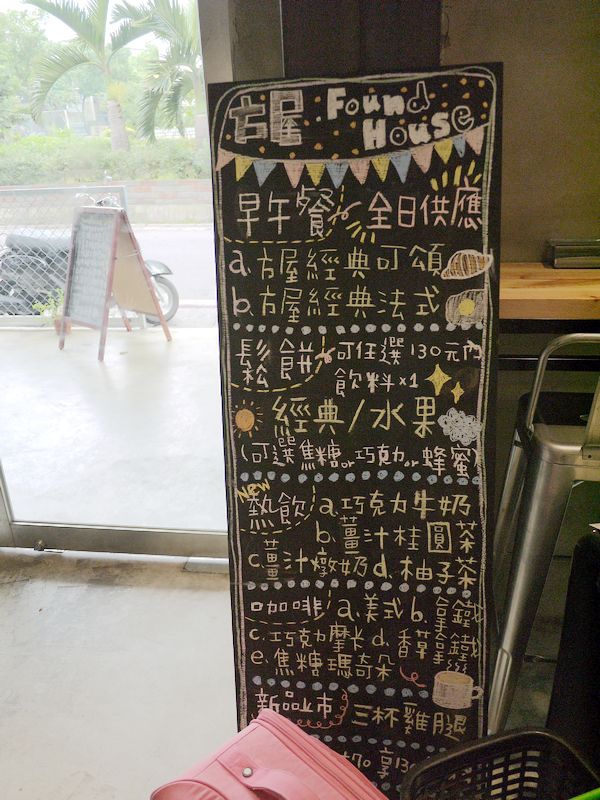 古屋 Found House
早午餐 全日供應
a. 古屋經典可頌
b. 古屋經典法式
鬆餅 可任選130元內
飲料x1
經典/水果
(可選焦糖or巧克力or蜂蜜)
New
熱飲 a.巧克力牛奶
b.薑汁桂圓茶
c.薑汁燉奶 d.柚子茶
咖啡 a.美式 b.拿鐵
c.巧克力摩卡 d.香草拿鐵
e.焦糖瑪奇朵
新品上市 三杯雞腿